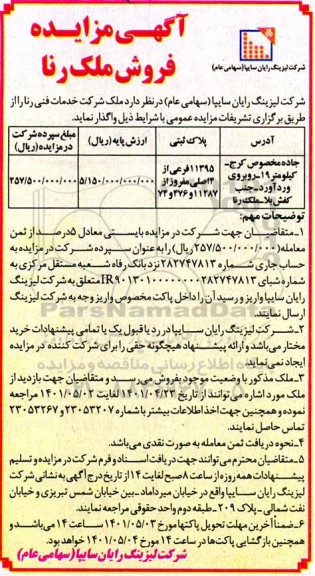 آگهی مزایده
فروش ملک رنا
شرکت لیزینگ رایان سایپا (سهامی عام)
شرکت لیزینگ رایان سایپا (سهامی عام) در نظر دارد ملک شرکت خدمات فنی رنا را از
طریق برگزاری تشریفات مزایده عمومی با شرایط ذیل واگذار نماید.
آدرس پلاک ثبتی ارزش پایه (ریال) مبلغ سپرده شرکت
در مزایده (ریال)
جاده مخصوص کرج-
کیلومتر ۱۹-روبروی
وردآورد-جنب
کفش بلا-ملک رنا
۱۱۳۹۵فرعی از
۴اصلی مفروز از
۱۱۲۸۷و۳۷۶و۷۴
۵/۱۵۰/۰۰۰/۰۰۰/۰۰۰
۲۵۷/۵۰۰/۰۰۰/۰۰۰
توضیحات مهم:
۱-متقاضیان جهت شرکت در مزایده بایستی معادل ۵درصد از ثمن
معامله(۲۵۷/۵۰۰/۰۰۰/۰۰۰ ریال) را به عنوان سپرده شرکت در مزایده به
حساب جاری شماره ۲۸۲۷۴۷۸۱۳ نزد بانک رفاه شعبه مستقل مرکزی به
شماره شبای متعلق به شرکت لیزینگ
رایان سایپا واریز و رسید آن را داخل پاکت مخصوص واریز وجه به شرکت لیزینگ
ارسال نمایند.
۲-شرکت لیزینگ رایان سایپا در رد یا قبول یک یا تمامی پیشنهادات خرید
مختار می‌باشد و ارائه پیشنهاد هیچگونه حقی را برای شرکت کننده در مزایده
ایجاد نمی‌نماید.
۳-ملک مذکور با وضعیت موجود بفروش می‌رسد و متقاضیان جهت بازدید از
ملک مورد اشاره می توانند از تاریخ ۱۴۰۱/۰۴/۲۲ لغایت ۱۴۰۱/۰۵/۰۲ مراجعه
نموده و همچنین جهت اخذ اطلاعات بیشتر با شماره ۲۳۰۵۳۲۰۷ و ۲۳۰۵۳۲۶۷
تماس حاصل نمایند.
۴-نحوه دریافت ثمن معامله به صورت نقدی می‌باشد.
۵-متقاضیان محترم می‌توانند جهت دریافت اسناد و فرم شرکت در مزایده و تسلیم
پیشنهادات همه روزه از ساعت ۸صبح لغایت ۱۴ از تاریخ درج آگهی به نشانی شرکت
لیزینگ رایان سایپا واقع در خیابان میرداماد -بین خیابان شمس تبریزی و خیابان
نفت شمالی - پلاک ۲۰۹ -طبقه دوم واحد حقوقی مراجعه نمایند.
۶-ضمنا آخرین مهلت تحویل پاکتها مورخ ۱۴۰۱/۰۵/۰۳ ساعت ۱۴ می‌باشد و
همچنین بازگشایی پاکت‌ها در ساعت ۱۴ مورخ ۱۴۰۱/۰۵/۰۴ خواهد بود.
شرکت لیزینگ رایان سایپا (سهامی عام)